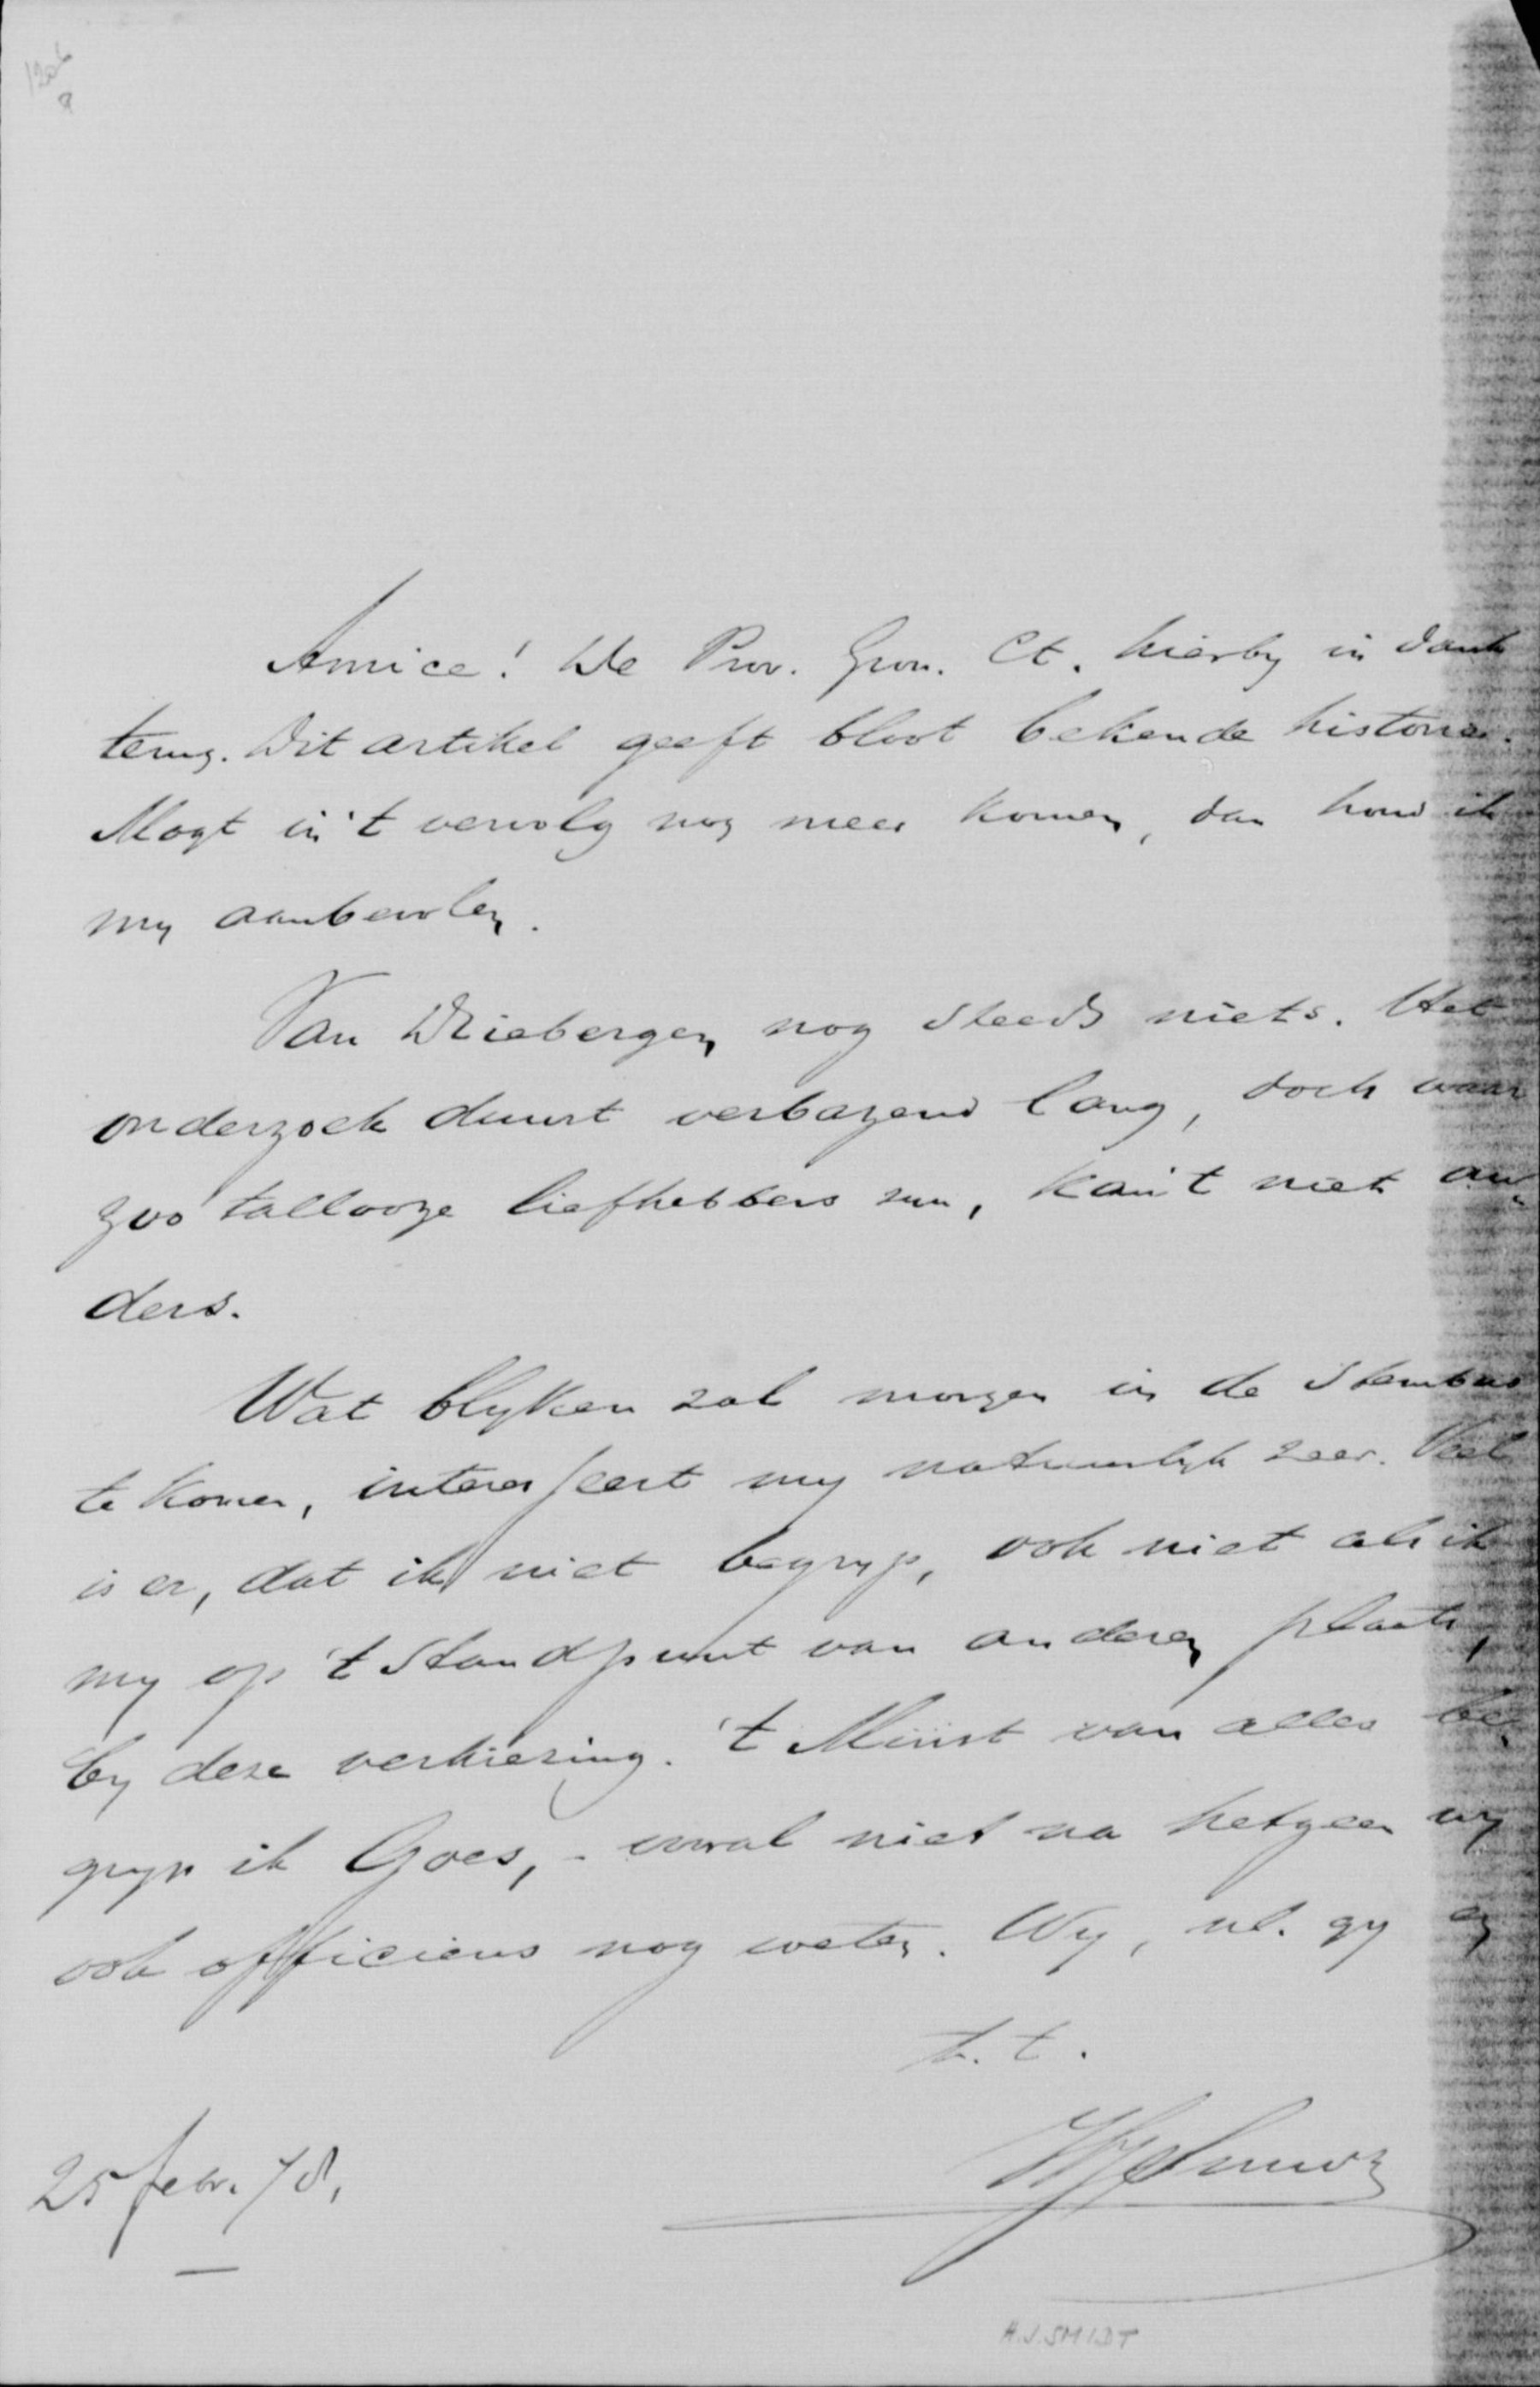 Amice! De Prov. Gron. Ct. hierby in dank
terug. Dit artikel geeft bloot bekende historie.
Mogt in 't vervolg nog meer komen, dan houd ik
my aanbevolen.
Van Driebergen nog steeds niets. Het
onderzoek duurt verbazend lang, doch waar
zoo tallooze liefhebbers zyn, kan 't niet an„
ders.
Wat blyken zal morgen in de stembus
te komen, interesseert my natuurlyk zeer. Veel
is er, dat ik niet begryp, ook niet als ik
my op 't standpunt van anderen plaats,
by deze verkiezing. 't Minst van alles be„
gryp ik Goes, - vooral niet na hetgeen wy
ook officieus nog weten. Wy, nl. gy en
t. t.
HJSmidt
25 febr. 78.
H.J. SMIDT